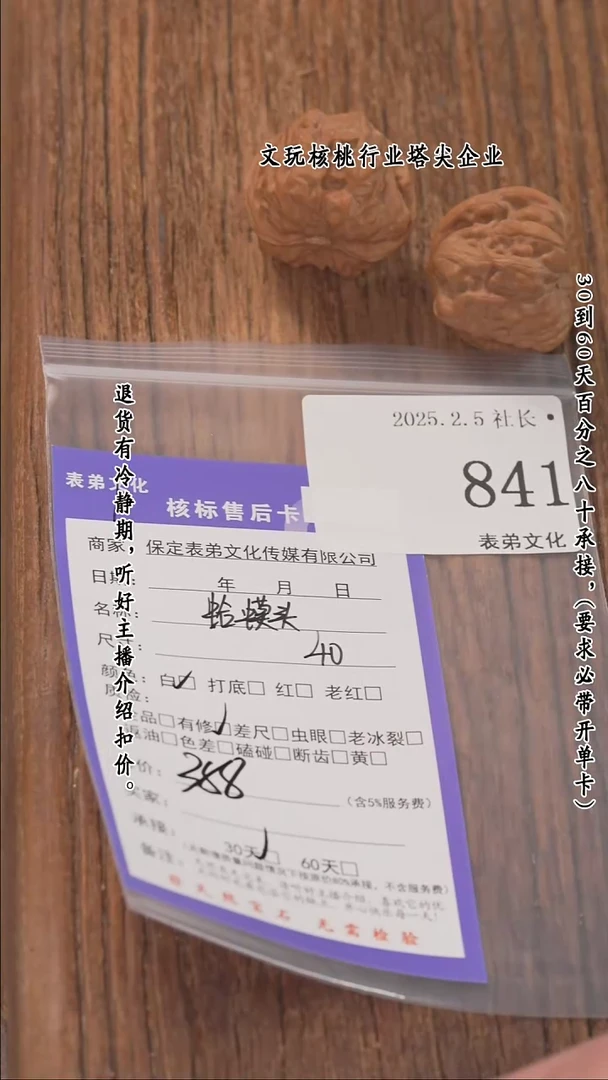 文玩核桃行业塔尖企业
30到60天百分之八十承接，（要求必带开单卡）
退货有冷静期，听好主播介绍扣价。
2025.2.5 社长
841
表弟文化
表弟文化
核标售后卡
商家：保定表弟文化传媒有限公司
日期： 年 月 日
名称： 蛤蟆头
尺寸： 40
颜色： 白☑ 打底□ 红□ 老红□
质检：
全品□有修☑差尺□虫眼□老冰裂□
返油□色差□磕碰□断齿□黄□
价： 368 （含5%服务费）
买家：
承接： 30天☑ 60天□
备注：
无需检验